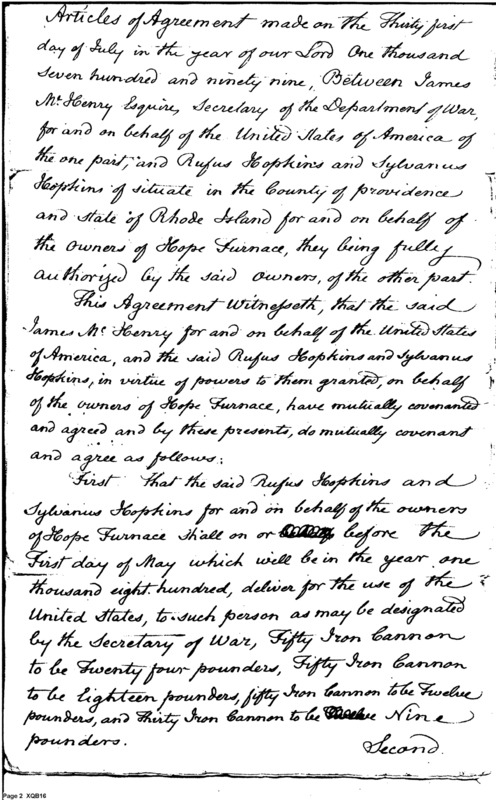 Articles of Agreement made on the Thirty first
day of July in the year of our Lord One thousand
seven hundred and ninety nine, Between James
Mc Henry Esquire, Secretary of the Department of War,
for and on behalf of the United States of America of
the one part, and Rufus Hopkins and Sylvanus
Hopkins of situate in the County of providence
and state of Rhode Island for and on behalf of
the owners of Hope Furnace, they being fully
authorized by the said owners, of the other part.
This Agreement Witnesseth, that the said
James Mc Henry for and on behalf of the United States
of America, and the said Rufus Hopkins and Sylvanus
Hopkins, in virtue of powers to them granted, on behalf
of the owners of Hope Furnace, have mutually covenanted
and agreed and by these presents, do mutually covenant
and agree as follows:
First that the said Rufus Hopkins and
Sylvanus Hopkins for and on behalf of the owners
of Hope Furnace shall on or before the
First day of May which will be in the year one
thousand eight hundred, deliver for the use of the
United States, to such person as may be designated
by the Secretary of War, Fifty Iron Cannon
to be Twenty four pounders, Fifty Iron Cannon
to be Eighteen pounders, fifty Iron Cannon to be Twelve
pounders, and Thirty Iron Cannon to be Nine
pounders.
Second.
Page 2 XQB16